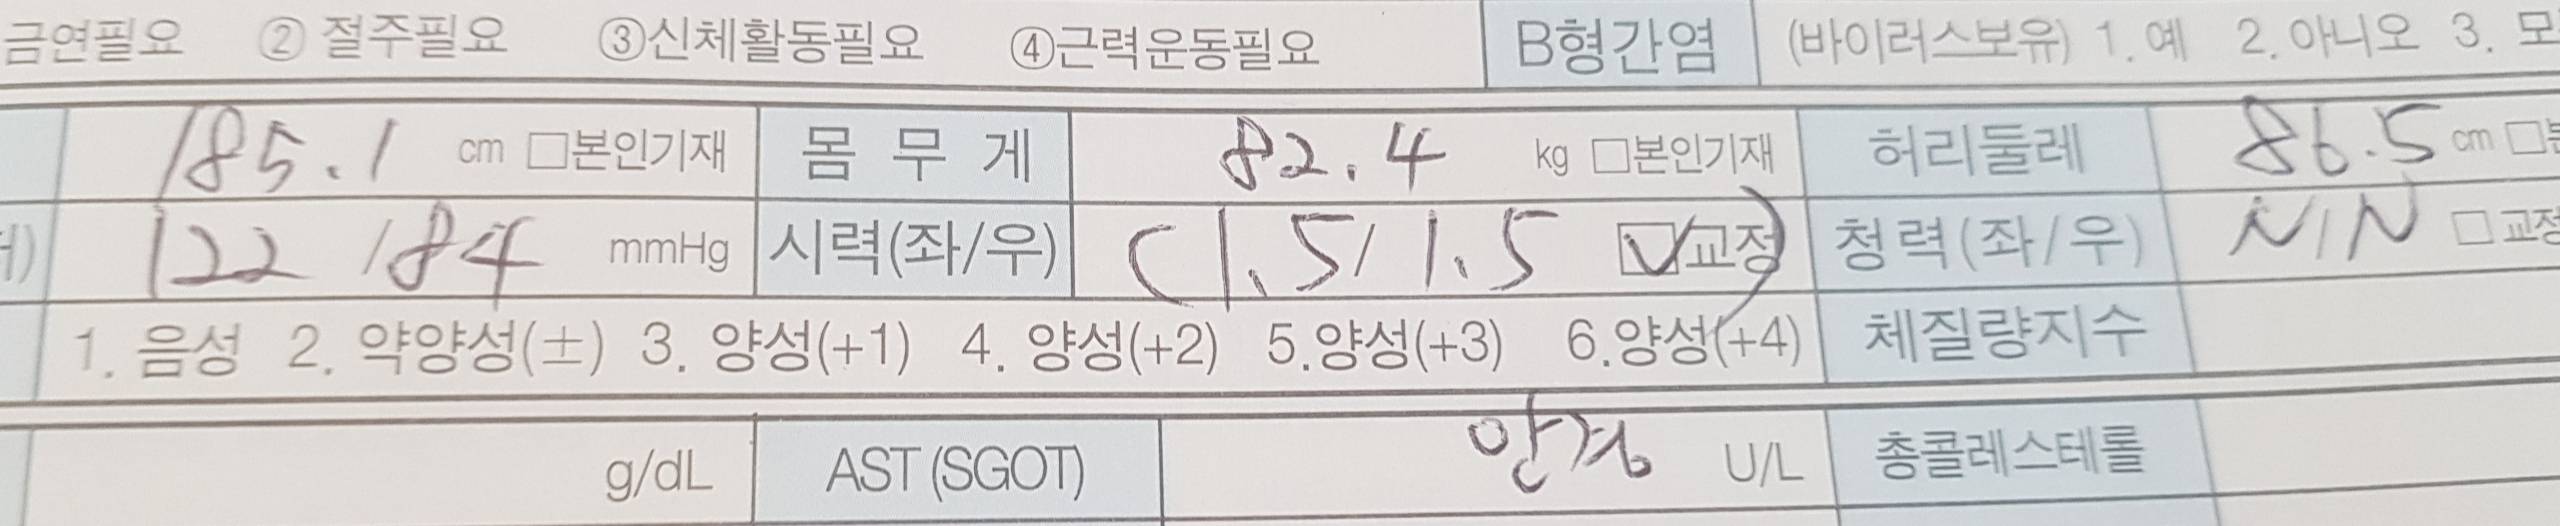 금연필요 ② 절주필요 ③신체활동필요 ④근력운동필요 B형간염 (바이러스보유) 1. 예 2. 아니오 3. 모
185.1 cm □본인기재 몸 무 게 82.4 kg □본인기재 허리둘레 86.5 cm □본
122 / 84 mmHg 시력(좌/우) (1.5/ 1.5 ☑교정) 청력(좌/우) N/N □교정
1. 음성 2. 약양성(±) 3. 양성(+1) 4. 양성(+2) 5.양성(+3) 6.양성(+4) 체질량지수
g/dL AST (SGOT) 안경 U/L 총콜레스테롤